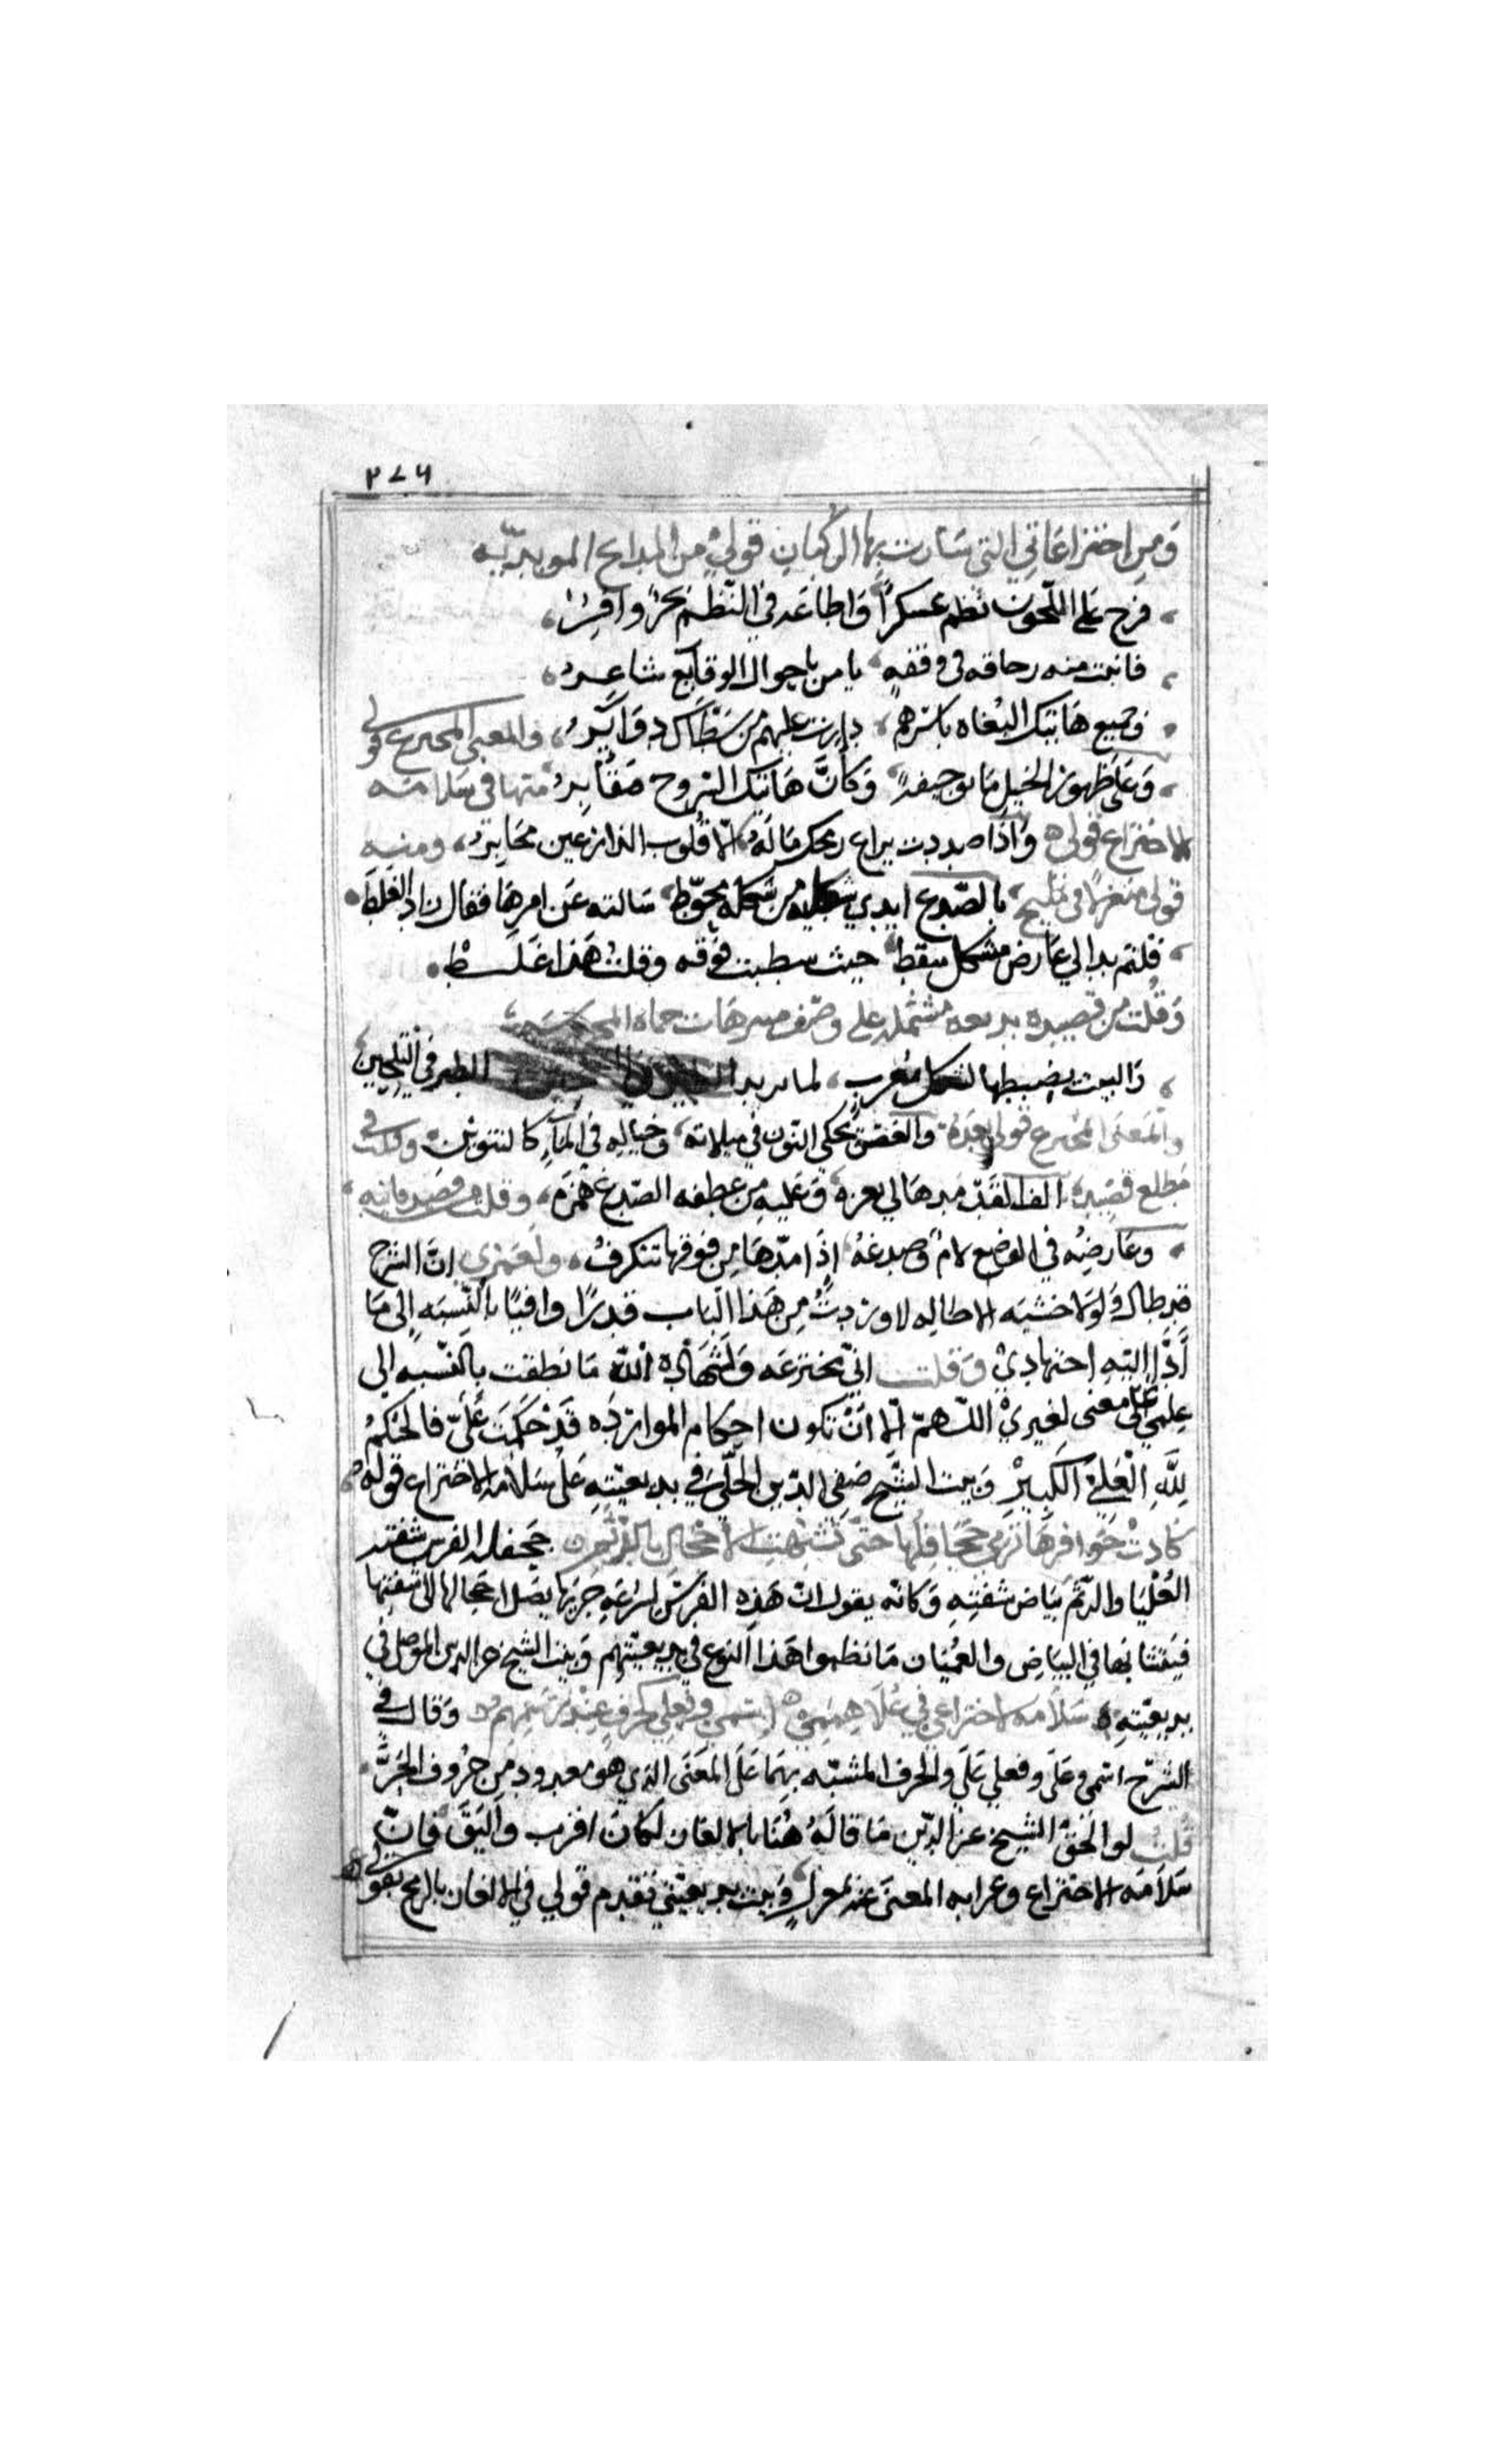 ٢٧٦
وَمِن اختراعَاتي التي سَارت بها الركبان قولي من المدايح المويديّه
فرج على اللجون نظم عسكرًا وَاطاعَه في النّظم بحرٌ وَافِرُ
فانبت منه رحافه في وقفه يا من باحوال الوقايع شاعِرُ
وجميع هَاتيك البُغاه باسْرهم دارت عليهم من سَطَاك دوَايرُ والمعنى المخترع قولي
وَعَلى ظهور الخيل مَاتوا خيفه وَكأنَّ هَاتيك السّروج مَقَابِرُ منها في سَلامَة
الاختراع قولي وَاذا صددت يراع رمحك مَا لَهُ الّا قُلوب الدارعين مَحَابِرُ ومنه
قولي متغزلا في مليح بالصّدغ ابدي شكله من شكله مخوّط سَالته عَن امرهَا فقال زاد الغلَط
قلتم بدا لي عَارض مشكل سقط حيث شطبت فوقه وقلت هَذا غَلَطْ
وَقلت من قصيده بديعه مشتمله على وصف منتزهَات حماه المحروسه
وَالبيت يضبطها بشكل مُعرب لما يريد الطير في التلحين
والمَعنى المخترع قولي بعدَهُ والغصن يحكي النّون في ميلانه وخياله في المآء كالتنوين وقلت في
مَطلع قصيده الف القدّ مدهَا لي بعزه وَعَليهِ من عطفه الصّدغ همزَه وقلت من قصيد فائيه
وعَارضِهُ في الوضع لامٌ وصدغهُ اذَا مدّهَا من فوقها تتكرفُ ولعَمري انّ الشرح
قد طال وَلولا خشيَه الاطاله لاوردتُ مِن هَذا البَاب قدرًا وافيًا بالنّسبَه الى مَا
أدّا اليه اجتهادي وَقلت اني مخترعَه وَلشهَادة الله مَا نطقت بالنّسبه الى
عِلمي على معنى لغيريْ اللّهمّ الّا انْ تكون احكام الموارَدَه قدْ حَكَمَت عَليّ فالحُكمُ
لِلّهِ الْعَليّ الكَبيرِ وَبيت الشيخ صَفي الدّين الحلّي في بديعيّتهِ عَلى سَلامَة الاختراع قولهُ
كادتْ حَوافرهَا تُرى جَحَافِلُها حتّى تشبّهت الاحجال بالرثم جحفلة الفرس شفته
العُلْيَا والرّثم بيَاض شفتِهِ وَكانه يقول ان هَذِهِ الفرسَ لسُرعَةِ جَريها يصَل احجالها الى شفتها
فيتشَابها في البيَاض والعُميَان مَا نظموا هَذا النوع في بديعيّتهم وَبيت الشيخ عز الدين الموصلي في
بديعيّتهِ سَلامَه الاختراعي في عُلَا هِممي اسمي وفعلي كحرفٍ عِنْدَ رَسْمِهُم وَقال في
الشرح اسمي وعَلَى وفعلي عَلي والحرف المشبّه بِهَما عَلَى المعَنى الذي هو معدود من حروف الجَرِّ
قلتُ لو الحَقَ الشيخ عز الدّين مَا قالَهُ هُنَا بالالغاز لكانَ اقرب وَاليَقَ فانّ
سَلَامَه الاختراع وعرابه المعنَى عنه بمعزلٍ وَبيت بديعيّتي تقدم قولي في الالغاز بالرمح بقولي